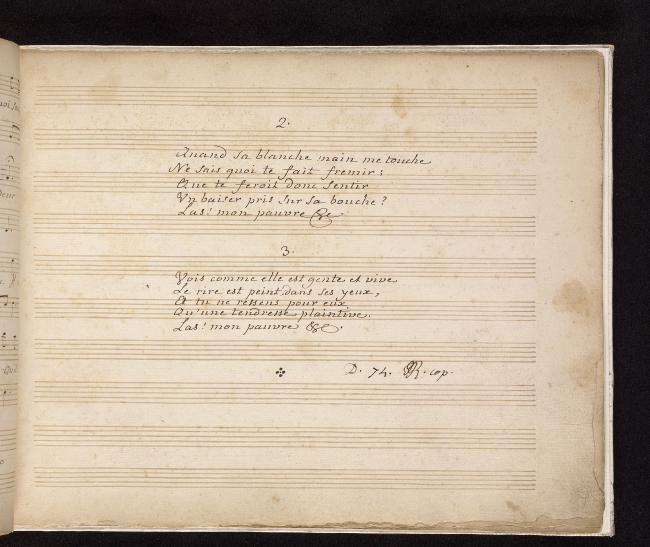 2.
Quand sa blanche main me touche
Ne sais quoi te fait fremir:
Que te feroit donc sentir
Un baiser pris sur sa bouche?
Las! mon pauvre &c
3.
Vois comme elle est gente et vive
Le rire est peint dans ses yeux,
Et tu ne ressens pour eux
Qu'une tendresse plaintive.
Las! mon pauvre &c.
D. 74. R. cop.